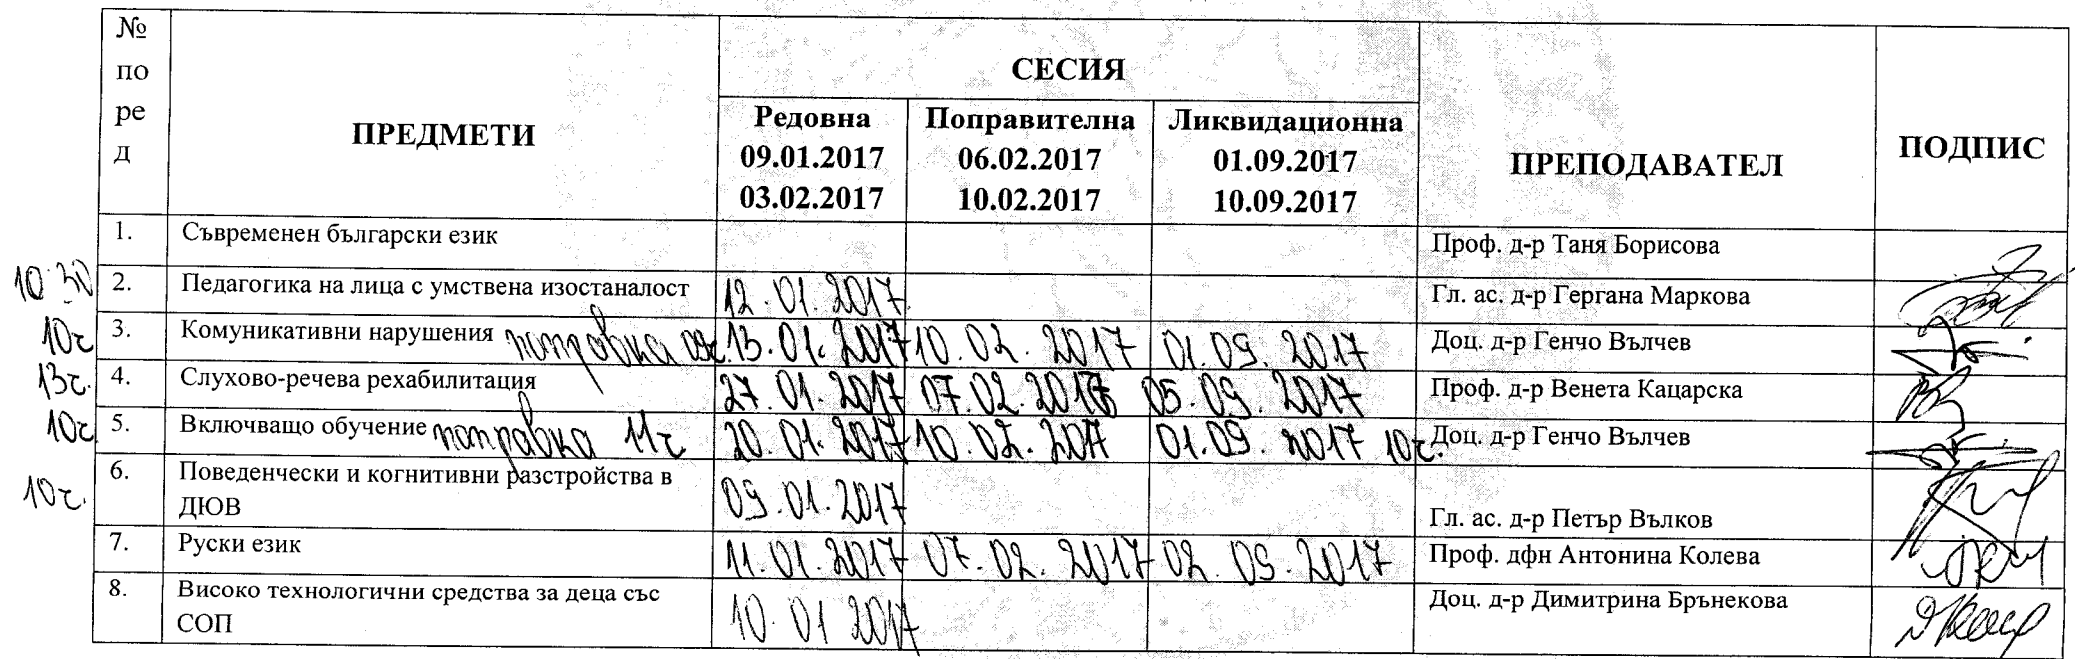 № по ред
ПРЕДМЕТИ
СЕСИЯ
ПРЕПОДАВАТЕЛ
ПОДПИС
Редовна
09.01.2017
03.02.2017
Поправителна
06.02.2017
10.02.2017
Ликвидационна
01.09.2017
10.09.2017
1. Съвременен български език Проф. д-р Таня Борисова
10 30 2. Педагогика на лица с умствена изостаналост 12.01.2017 Гл. ас. д-р Гергана Маркова
10ч 3. Комуникативни нарушения поправка 13.01.2017 10.02.2017 01.09.2017 Доц. д-р Генчо Вълчев
13ч. 4. Слухово-речева рехабилитация 27.01.2017 07.02.2017 05.09.2017 Проф. д-р Венета Кацарска
10ч 5. Включващо обучение поправка 11ч 20.01.2017 10.02.2017 01.09.2017 10ч. Доц. д-р Генчо Вълчев
10ч. 6. Поведенчески и когнитивни разстройства в
ДЮВ 09.01.2017 Гл. ас. д-р Петър Вълков
7. Руски език 11.01.2017 07.02.2017 02.09.2017 Проф. дфн Антонина Колева
8. Високо технологични средства за деца със
СОП 10.01 2017 Доц. д-р Димитрина Брънекова